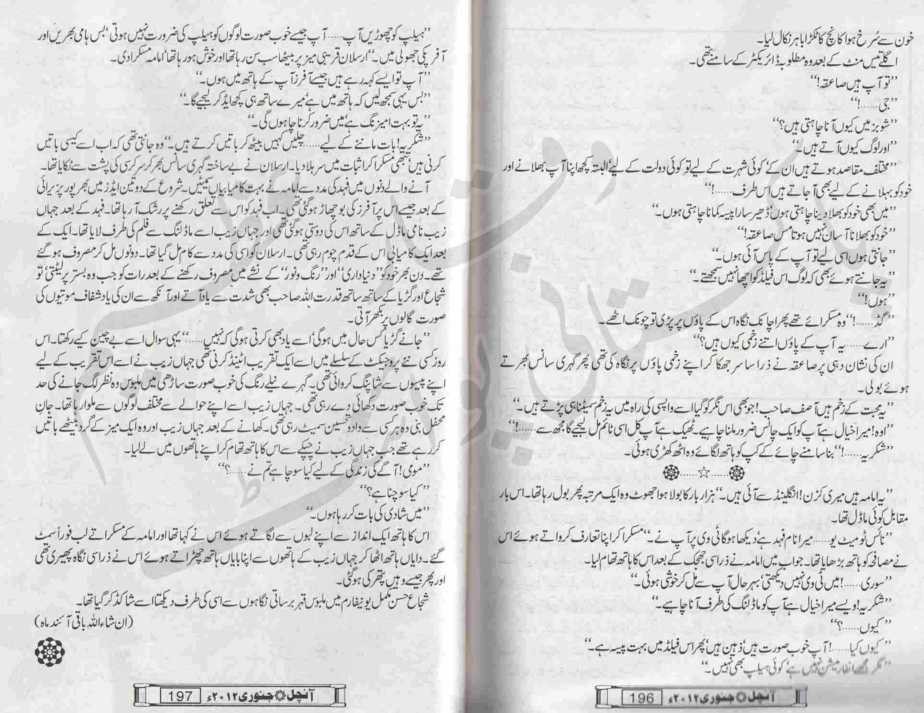 خون سے سُرخ ہوا کانچ کا ٹکڑا باہر نکال لیا۔
اگلے بیس منٹ کے بعد وہ مطلوبہ ڈائریکٹر کے سامنے تھی۔
”تو آپ ہیں صاعقہ!“
”جی......!“
”شوبز میں کیوں آنا چاہتی ہیں؟“
”اور لوگ کیوں آتے ہیں۔“
”مختلف مقاصد ہوتے ہیں ان کے‘ کوئی شہرت کے لیے تو کوئی دولت کے لیے‘ البتہ کچھ اپنا آپ بھلانے اور
خود کو بہلانے کے لیے بھی آ جاتے ہیں اس طرف......!“
”میں بھی خود کو بھلا دینا چاہتی ہوں‘ ڈھیر سارا پیسہ کمانا چاہتی ہوں۔“
”خود کو بھلانا آسان نہیں ہوتا مس صاعقہ!“
”جانتی ہوں اسی لیے تو آپ کے پاس آئی ہوں۔“
”یہ جانتے ہوئے بھی کہ لوگ اس فیلڈ کو اچھا نہیں سمجھتے۔“
”ہوں!“
”گڈ......!“ وہ مسکرائے تھے پھر اچانک نگاہ اس کے پاؤں پر پڑی تو چونک اٹھے۔
”ارے...... یہ آپ کے پاؤں اتنے زخمی کیوں ہیں؟“
ان کی نشان دہی پر صاعقہ نے ذرا سا سر جھکا کر اپنے زخمی پاؤں پر نگاہ کی تھی پھر گہری سانس بھرتے
ہوئے بولی۔
”یہ محبت کے زخم ہیں آصف صاحب! جو بھی اس نگر کو گیا اسے واپسی کی راہ میں یہ زخم سمیٹنا ہی پڑتے ہیں۔“
”اوہ! میرا خیال ہے آپ کو ایک چانس ضرور ملنا چاہیے۔ ٹھیک ہے آپ کل اسی ٹائم مل لیجیے گا مجھ سے......!“
”شکریہ......!“ بنا سامنے چائے کے کپ کو ہاتھ لگائے وہ اٹھ کھڑی ہوئی۔
❁......☆......❁
”یہ امامہ ہیں میری کزن! انگلینڈ سے آئی ہیں۔“ ہزار بار کا بولا ہوا جھوٹ وہ ایک مرتبہ پھر بول رہا تھا۔ اس بار
مقابل کوئی ماڈل تھا۔
”نائس ٹو میٹ یو...... میرا نام فہد ہے دیکھا ہوگا ٹی وی پر آپ نے۔“ مسکرا کر اپنا تعارف کرواتے ہوئے اس
نے مصافحے کو ہاتھ بڑھایا تھا۔ جواب میں امامہ نے ذرا سی جھجک کے بعد اس کا ہاتھ تھام لیا۔
”سوری......! میں ٹی وی نہیں دیکھتی‘ بہرحال آپ سے مل کر خوشی ہوئی۔“
”شکریہ! ویسے میرا خیال ہے آپ کو ماڈلنگ کی طرف آنا چاہیے۔“
”کیوں......؟“
”کیوں کیا......! آپ خوب صورت ہیں‘ ذہین ہیں‘ پھر اس فیلڈ میں بہت پیسہ ہے۔“
”مگر مجھے انفارمیشن نہیں ہے‘ کوئی ہیلپ بھی نہیں۔“
آنچل جنوری ۲۰۱۲ء 196
”ہیلپ کو چھوڑیں آپ...... آپ جیسے خوب صورت لوگوں کو ہیلپ کی ضرورت نہیں ہوتی‘ بس ہامی بھریں اور
آفر پکی جھولی میں۔“ ارسلان قریبی میز پر بیٹھا سب سن رہا تھا اور خوش ہو رہا تھا‘ امامہ مسکرا دی۔
”آپ تو ایسے کہہ رہے ہیں جیسے آفرز آپ کے ہاتھ میں ہوں۔“
”بس یہی سمجھ لیں کہ ہاتھ میں ہے میرے ساتھ ہی کچھ ایڈ کر لیجیے گا۔“
”یہ تو بہت امیزنگ ہے‘ میں ضرور کرنا چاہوں گی۔“
”شکریہ! بات ماننے کے لیے...... چلیں کہیں بیٹھ کر باتیں کرتے ہیں۔“ وہ جانتی تھی کہ اب اسے کیسی باتیں
کرنی ہیں‘ تبھی مسکرا کر اثبات میں سر ہلا دیا۔ ارسلان نے بے ساختہ گہری سانس بھر کر سر کرسی کی پشت سے ٹکایا تھا۔
آنے والے دنوں میں فہد کی مدد سے امامہ نے بہت کامیابیاں سمیٹیں۔ شروع کے دو تین ایڈز میں بھرپور پزیرائی
کے بعد جیسے اس پر آفرز کی بوچھاڑ ہو گئی تھی۔ اب فہد کو اس سے تعلق رکھنے پر رشک آ رہا تھا۔ فہد کے بعد جہاں
زیب نامی ماڈل کے ساتھ اس کی دوستی ہو گئی تھی اور جہاں زیب اسے ماڈلنگ سے فلم کی طرف لایا تھا۔ ایک کے
بعد ایک کامیابی اس کے قدم چوم رہی تھی۔ ارسلان کو اسی کی مدد سے کام مل گیا تھا۔ دونوں مل کر مصروف ہو گئے
تھے۔ دن بھر خود کو ”دنیا داری“ اور ”رنگ و نور“ کے نشے میں مصروف رکھنے کے بعد رات کو جب وہ بستر پر لیٹتی‘ تو
شجاع اور گڑیا کے ساتھ ساتھ قدرت اللہ صاحب بھی شدت سے یاد آتے اور آنکھ سے ان کی یاد شفاف موتیوں کی
صورت گالوں پر بکھر آتی۔
”جانے گڑیا کس حال میں ہوگی‘ اسے یاد بھی کرتی ہوگی کہ نہیں......“ یہی سوال اسے بے چین کیے رکھتا۔ اس
روز کسی نئے پروجیکٹ کے سلسلے میں اسے ایک تقریب اٹینڈ کرنی تھی جہاں زیب نے اسے اس تقریب کے لیے
اپنے پیسوں سے شاپنگ کروائی تھی۔ گہرے نیلے رنگ کی خوب صورت ساڑھی میں ملبوس وہ نظر لگ جانے کی حد
تک خوب صورت دکھائی دے رہی تھی۔ جہاں زیب اسے اپنے حوالے سے مختلف لوگوں سے ملوا رہا تھا۔ جانِ
محفل بنی وہ ہر کسی سے داد و تحسین سمیٹ رہی تھی۔ کھانے کے بعد جہاں زیب اور وہ ایک میز کے گرد بیٹھے باتیں
کر رہے تھے جب جہاں زیب نے چپکے سے اس کا ہاتھ تھام کر اپنے ہاتھوں میں لے لیا۔
”موہی! آگے کی زندگی کے لیے کیا سوچا ہے تم نے......؟“
”کیا سوچنا ہے؟“
”میں شادی کی بات کر رہا ہوں۔“
اس کا ہاتھ ایک انداز سے اپنے لبوں سے لگاتے ہوئے اس نے کہا تھا اور امامہ کے مسکراتے لب فوراً سمٹ
گئے۔ دایاں ہاتھ اٹھا کر جہاں زیب کے ہاتھوں سے اپنا بایاں ہاتھ چھڑاتے ہوئے اس نے ذرا سی نگاہ پھیری تھی
اور پھر جیسے وہیں پتھر کی ہو گئی۔
شجاع حسن مکمل یونیفارم میں ملبوس قہر برساتی نگاہوں سے اسی کی طرف دیکھتا اسے شاکڈ کر گیا تھا۔
(ان شاء اللہ باقی آئندہ ماہ)
آنچل جنوری ۲۰۱۲ء 197